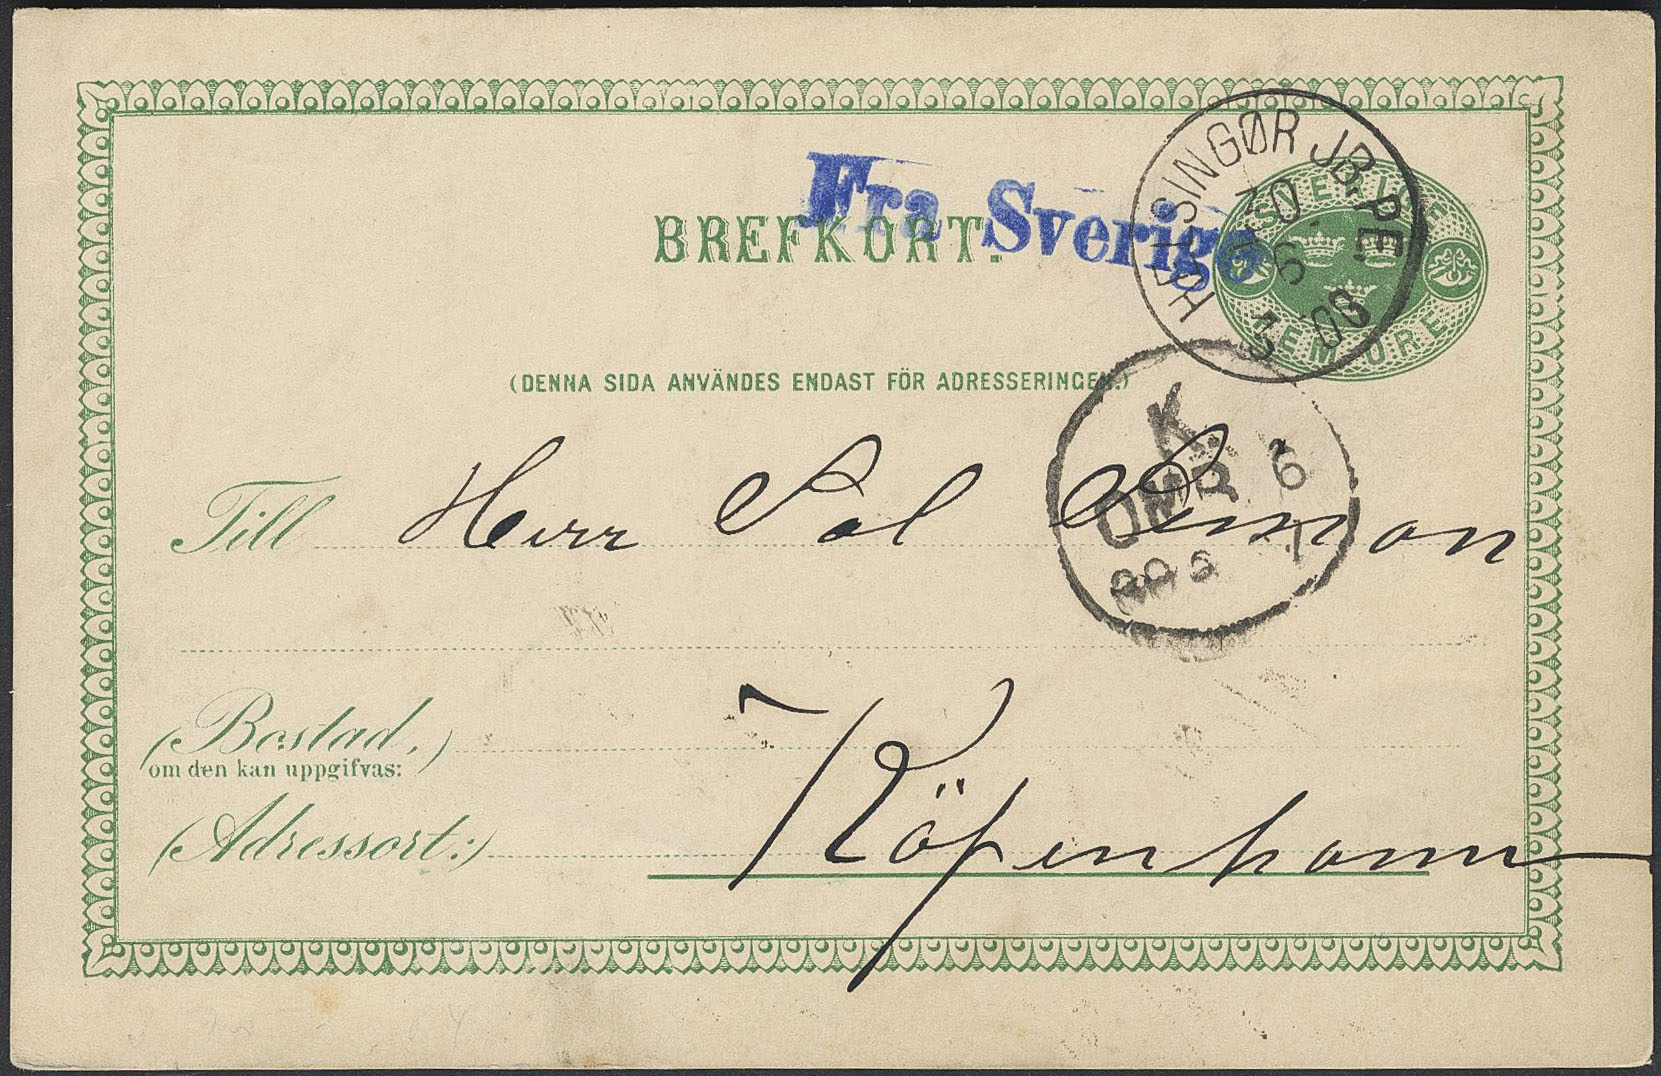 Fra Sverige
BREFKORT.
HELSINGØR JB.PE.
SVERIGE
FEM ÖRE
(DENNA SIDA ANVÄNDES ENDAST FÖR ADRESSERINGEN.)
K.
OMB. 6
Till Herr Sal Simon
(Bostad,)
om den kan uppgifvas:
(Adressort:) Köpenhamn